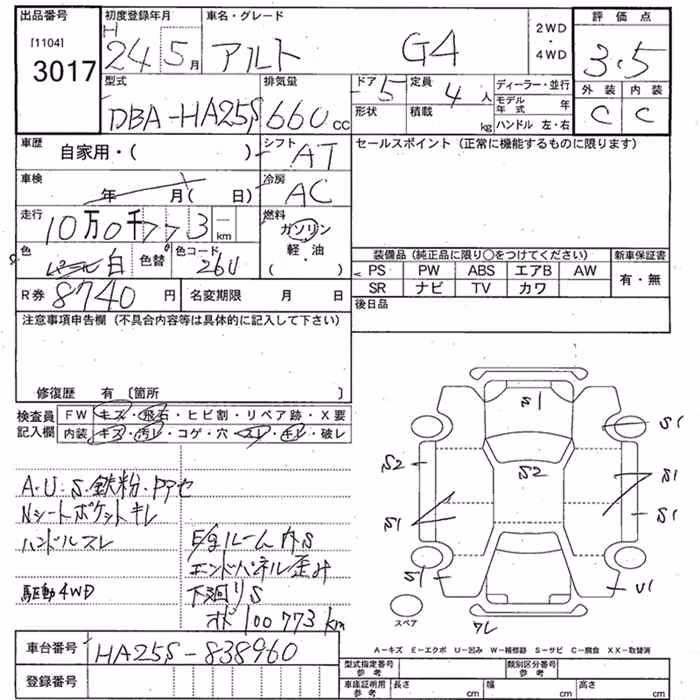 出品番号
[1104]
3017
初度登録年月
H
24年5月
車名・グレード
アルト G4
2WD
・
4WD
評価点
3.5
外装 内装
C C
型式
DBA-HA25S
排気量
660cc
ドア 5
形状
定員 4人
積載 kg
ディーラー・並行
モデル年式 年
ハンドル 左・右
車歴
自家用・( )
シフト
AT
セールスポイント (正常に機能するものに限ります)
車検
年 月( 日)
冷房
AC
走行
10万0千773km
燃料
ガソリン
軽・油
( )
色
白
色替
色コード
26U
装備品 (純正品に限り○をつけてください)
新車保証書
PS PW ABS エアB AW
SR ナビ TV カワ
有・無
R券 8740円
名変期限 月 日
後日品
注意事項申告欄 (不具合内容等は具体的に記入して下さい)
修復歴 有 〔箇所 〕
検査員記入欄
FW キズ・飛石・ヒビ割・リペア跡・X要
内装 キズ・汚レ・コゲ・穴・スレ・キレ・破レ
A・U・S・鉄粉・PアセNシートポケットキレ
ハンドルスレ
駆動4WD
E/gルーム内S
エンドパネル歪み
下廻りS
オド100773km
S1
S1
S2
S2
S1
S1
S1
S1
U1
ワレ
スペア
車台番号
HA25S-838960
登録番号
A-キズ E-エクボ U-凹み W-補修跡 S-サビ C-腐食 XX-取替済
型式指定番号
参考
類別区分番号
参考
車庫証明用
参考
長さ cm
幅 cm
高さ cm